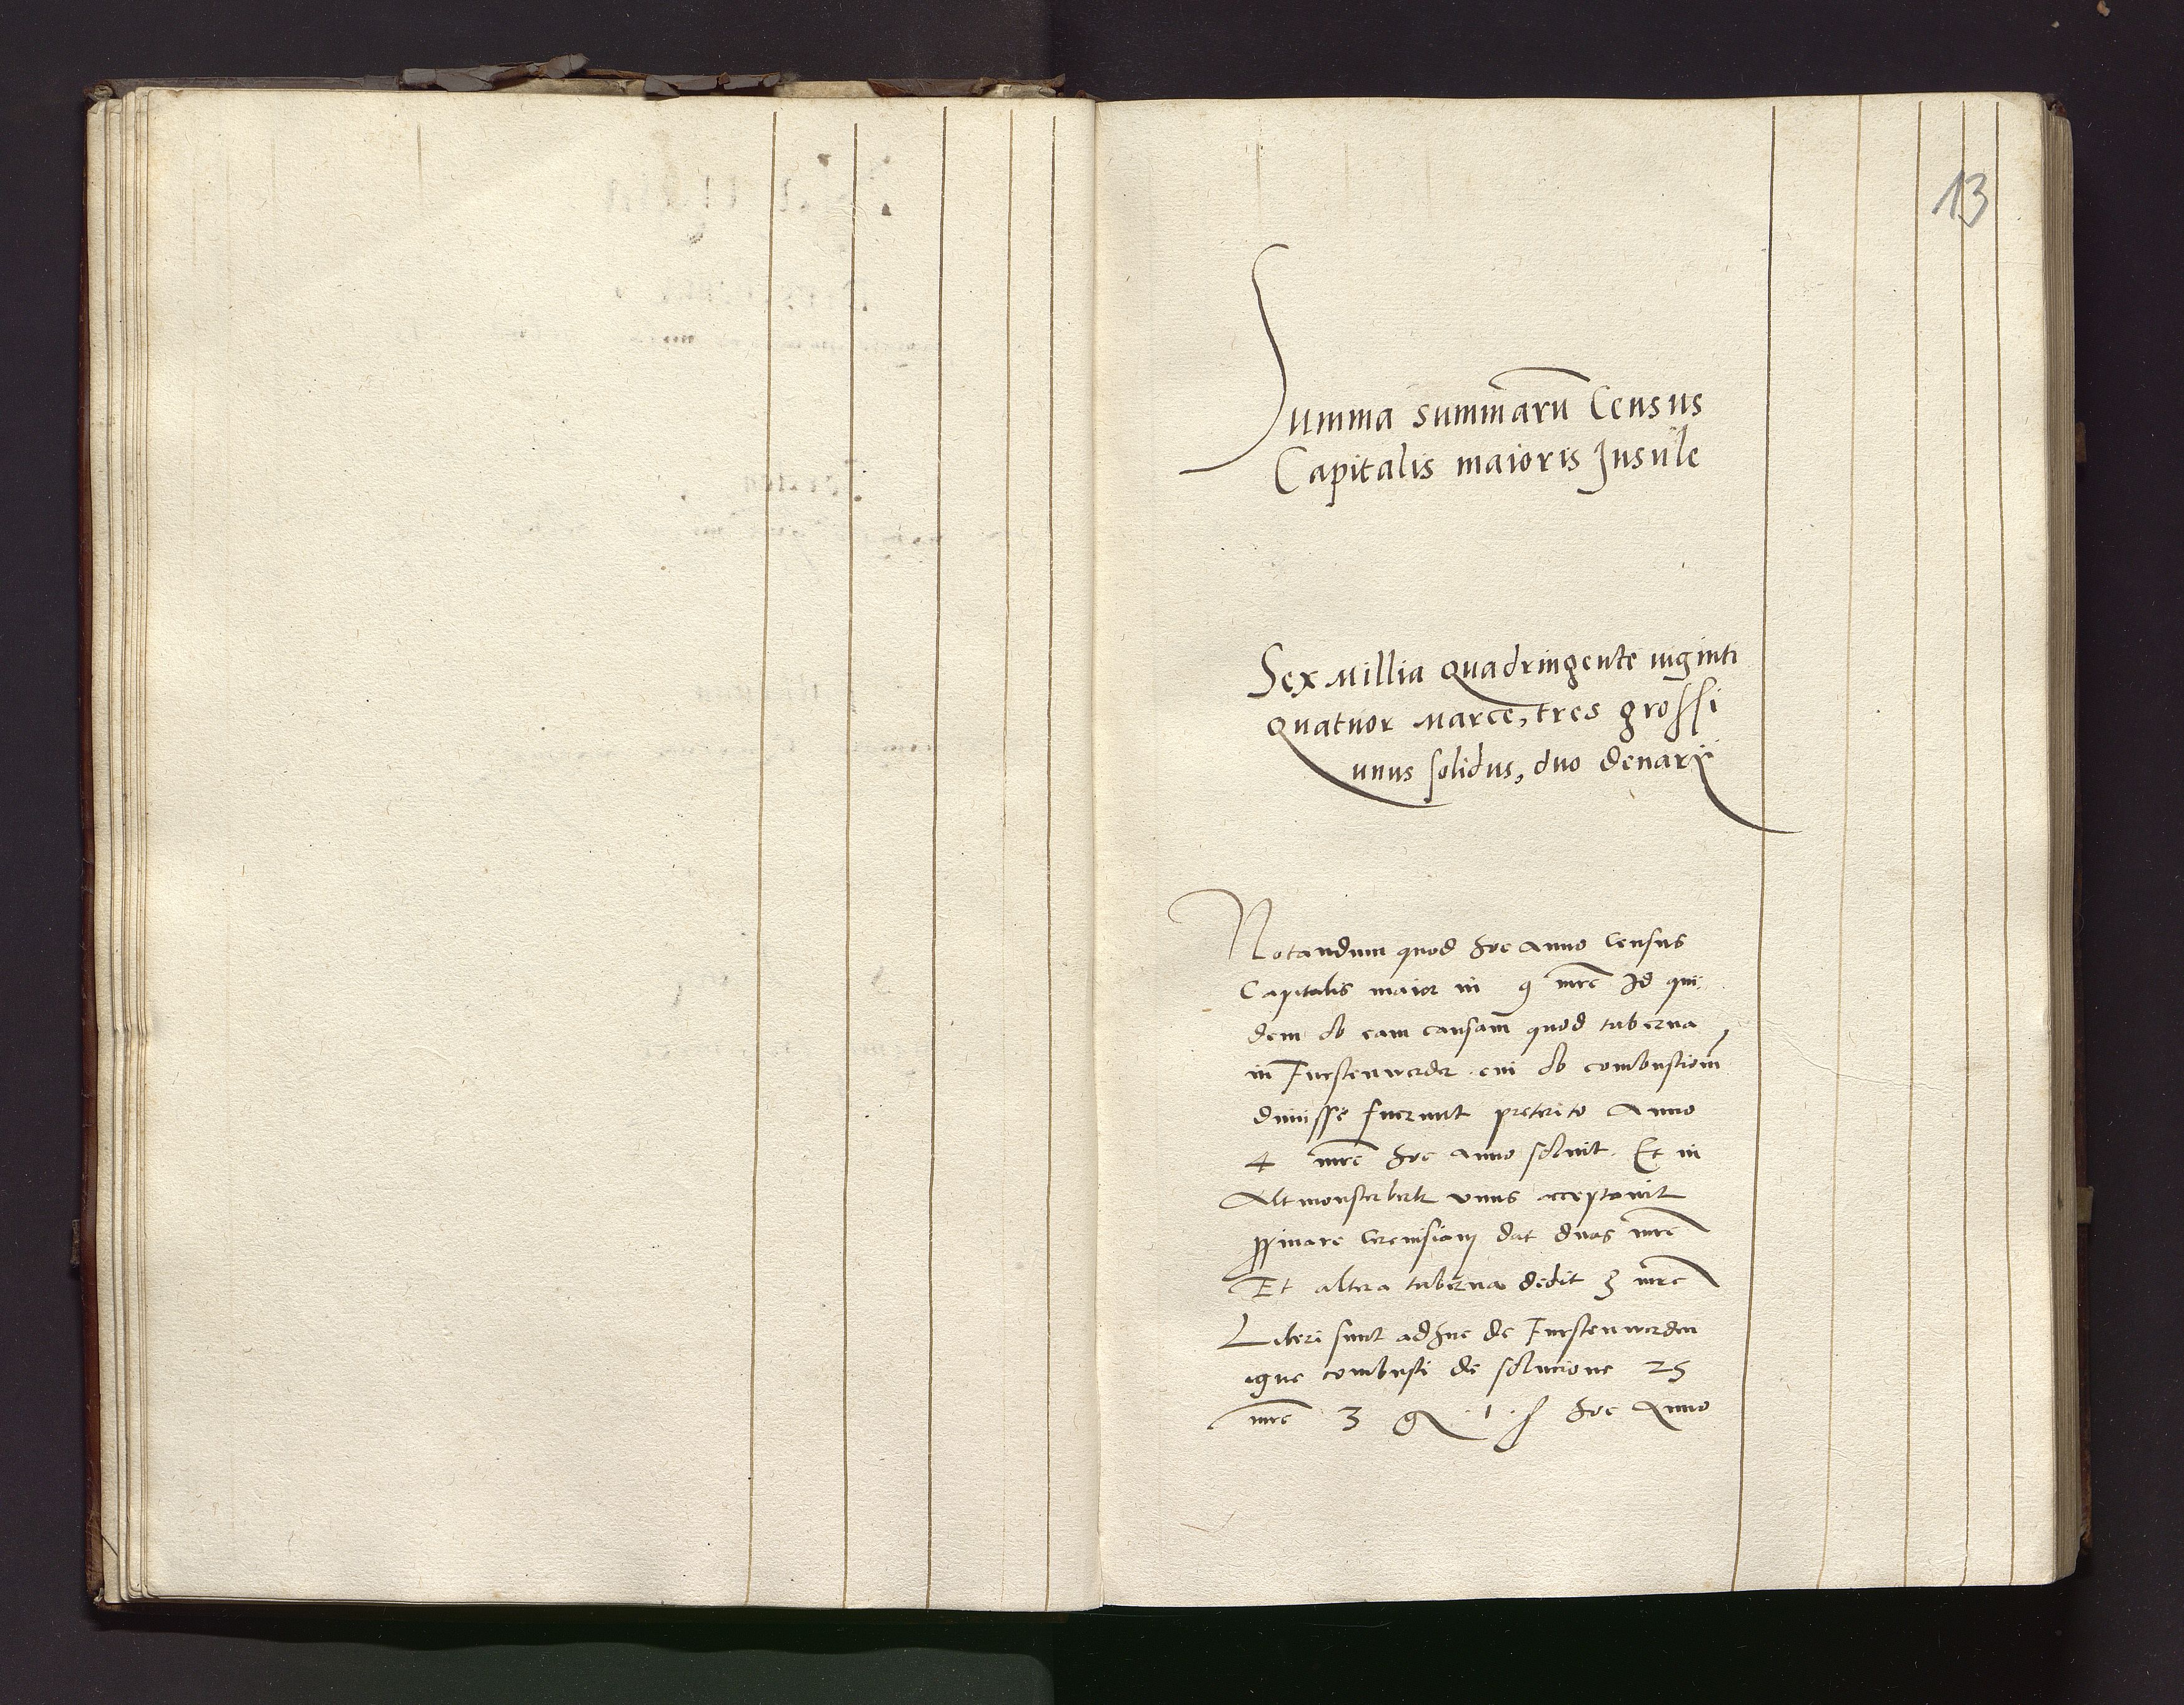 13
Summa summaru Census
Capitalis maioris Insule
Sex Millia Quadringente viginti
Quatuor Marce, tres grossi
unus solidus, duo denarij
Notandum quod hoc anno Census
Capitalis maior in 9 mrc Id qui
dem ob eam causam quod taberna
in Furstenwerder cui ob combustiom
dimisse fuerunt preterito Anno
4 mrc hoc anno soluit. Et in
Altmonsterberk unus acceptauit
ppinare Ceruisiam dat duas mrc
Et altera taberna dedit 3 mrc
Liberi sunt adhuc de Furstenwerder
igne combusti de solucione 25
mrc 3 g 1 s hoc Anno